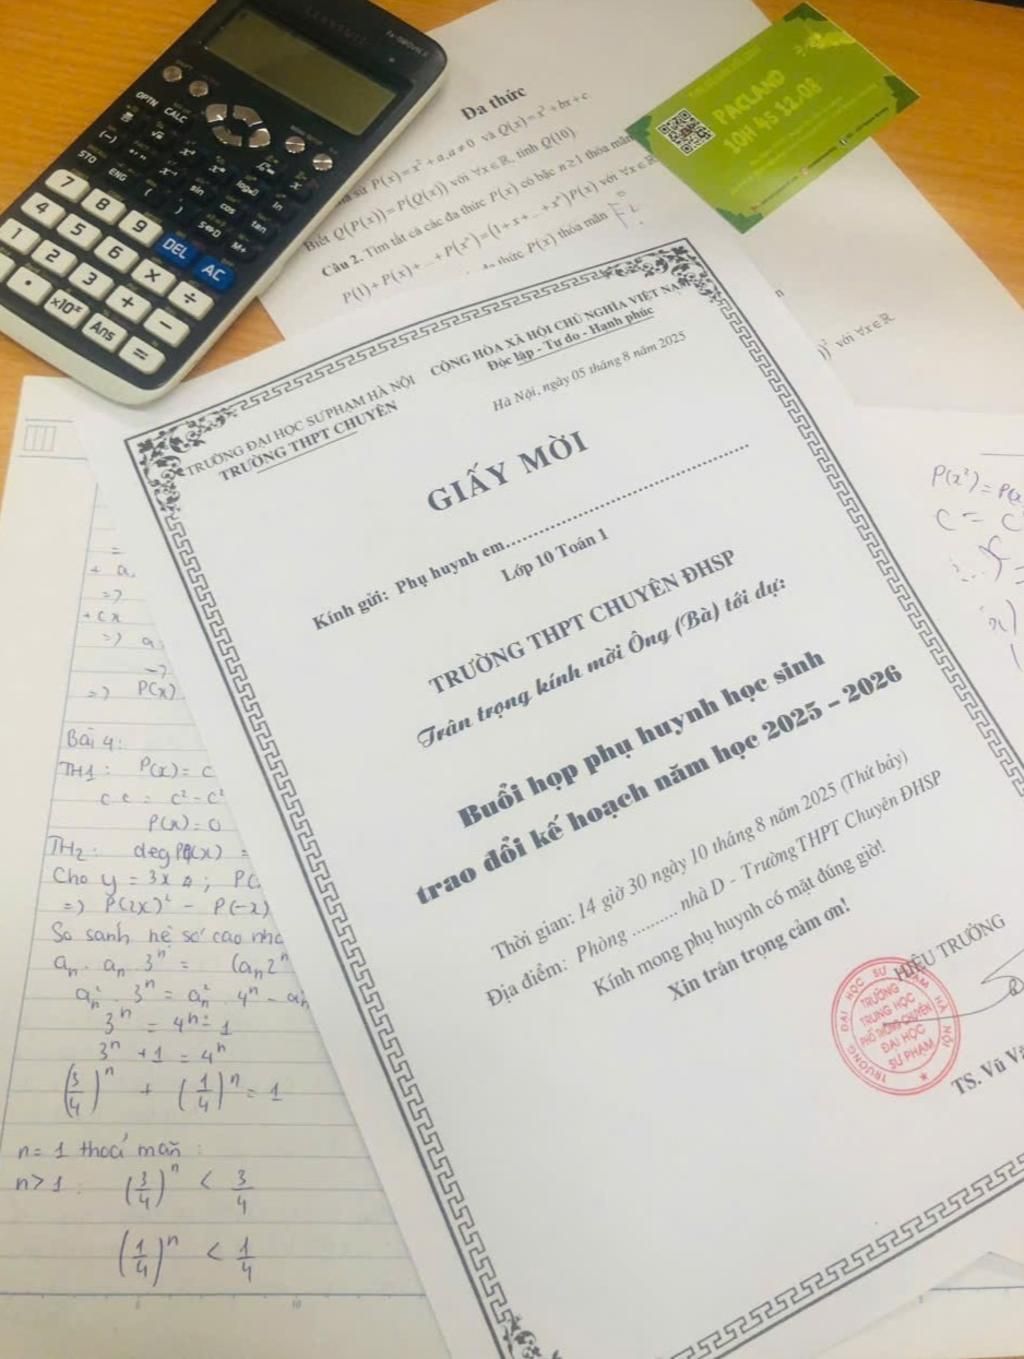 OPTN CALC
STO ENG
sin cos tan
ln
M+
7 8 9 DEL AC
4 5 6 × ÷
1 2 3 + −
• ×10ˣ Ans =
PACLAND
10H 45 12.08
Đa thức
P(x)=x²+a, a≠0 và Q(x)=x²+bx+c.
Biết Q(P(x))=P(Q(x)) với ∀x∈ℝ, tính Q(10).
Câu 2. Tìm tất cả các đa thức P(x) có bậc n≥1 thỏa mãn
P(1)+P(x)+...+P(xⁿ)=(1+x+...+xⁿ)P(x) với ∀x∈ℝ
thức P(x) thỏa mãn
))² với ∀x∈ℝ
TRƯỜNG ĐẠI HỌC SƯ PHẠM HÀ NỘI
TRƯỜNG THPT CHUYÊN
CỘNG HÒA XÃ HỘI CHỦ NGHĨA VIỆT NAM
Độc lập - Tự do - Hạnh phúc
Hà Nội, ngày 05 tháng 8 năm 2025
GIẤY MỜI
Kính gửi: Phụ huynh em..........................................
Lớp 10 Toán 1
TRƯỜNG THPT CHUYÊN ĐHSP
Trân trọng kính mời Ông (Bà) tới dự:
Buổi họp phụ huynh học sinh
trao đổi kế hoạch năm học 2025 – 2026
Thời gian: 14 giờ 30 ngày 10 tháng 8 năm 2025 (Thứ bảy)
Địa điểm: Phòng ......... nhà D - Trường THPT Chuyên ĐHSP
Kính mong phụ huynh có mặt đúng giờ!
Xin trân trọng cảm ơn!
HIỆU TRƯỞNG
TRƯỜNG ĐẠI HỌC SƯ PHẠM HÀ NỘI
TRƯỜNG
TRUNG HỌC
PHỔ THÔNG CHUYÊN
ĐẠI HỌC
SƯ PHẠM
TS. Vũ Vă
=
+ a.
=>
+ cx
=> a
=> P(x)
Bài 4:
TH1: P(x) = c
c = c² - c²
P(x) = 0
TH2: deg P(x) =
Cho y = 3x ; P(
=> P(2x)² - P(-x)
So sánh hệ số cao nhấ
aₙ . aₙ . 3ⁿ = (aₙ2ⁿ
aₙ² . 3ⁿ = aₙ² . 4ⁿ - aₙ
3ⁿ = 4ⁿ - 1
3ⁿ + 1 = 4ⁿ
(3/4)ⁿ + (1/4)ⁿ = 1
n = 1 thoả mãn :
n > 1 : (3/4)ⁿ < 3/4
(1/4)ⁿ < 1/4
P(x²) = P(x
c = c